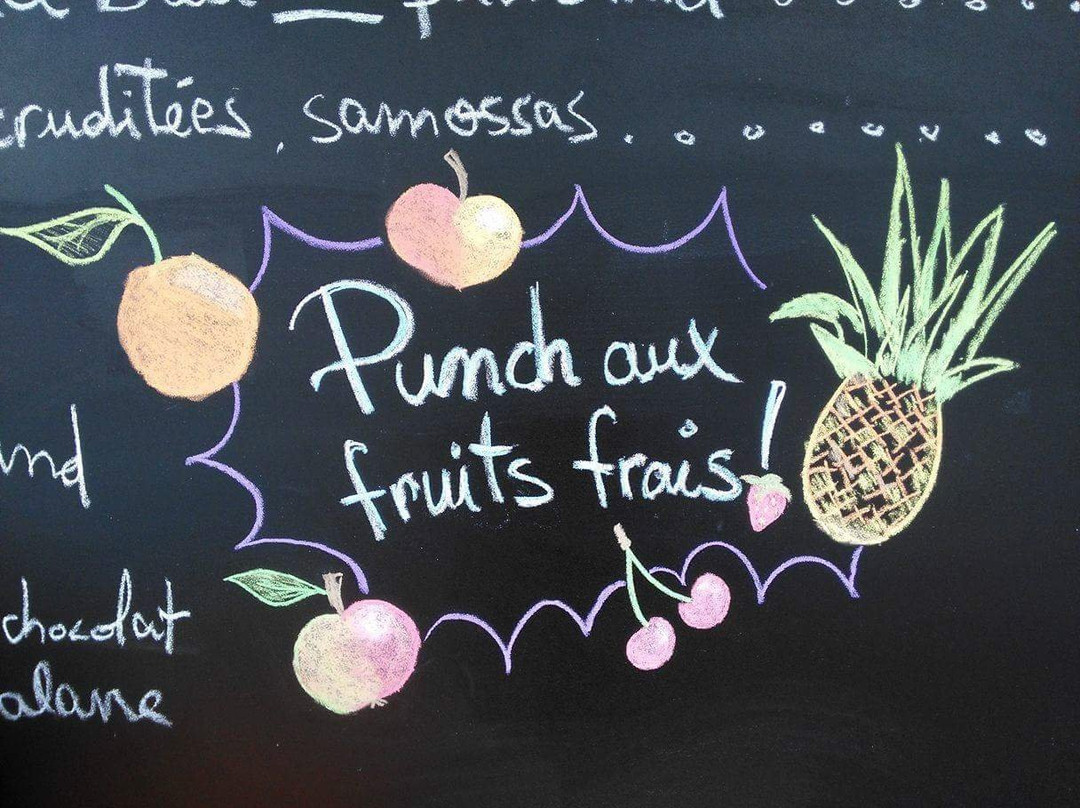 cruditées, samossas
Punch aux
fruits frais!
and
chocolat
alane